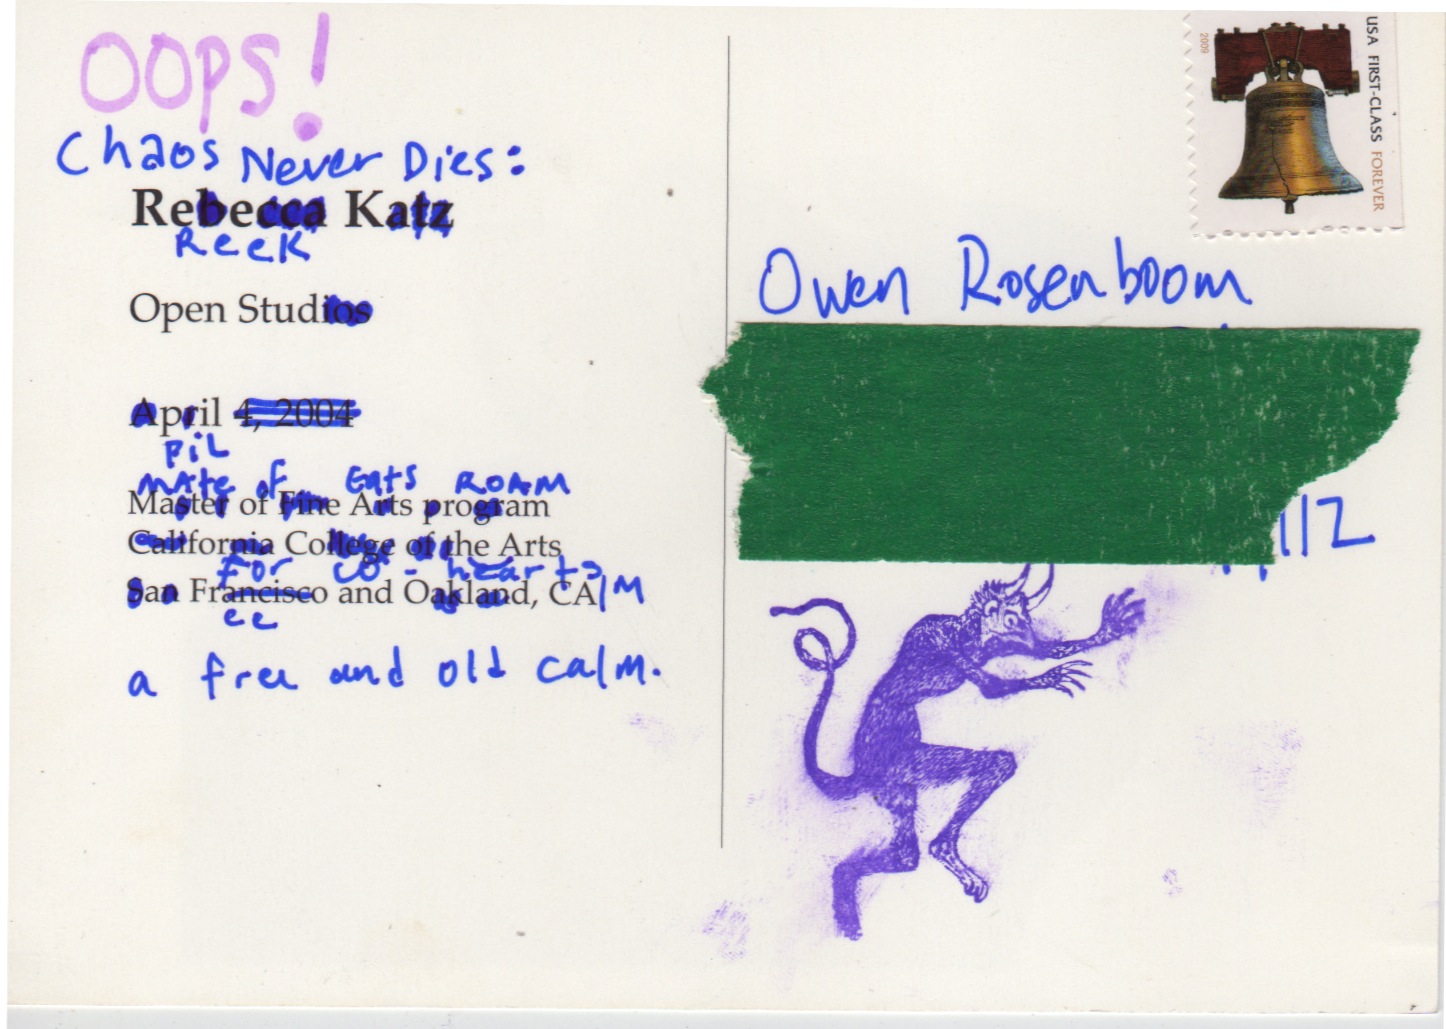 OOPS!
Chaos Never Dies:
Rebecca Katz
Reek
Open Studios
April 4, 2004
PiL
MATE of EATS ROAM
Master of Fine Arts program
California College of the Arts
For co-hearts
San Francisco and Oakland, CA/M
ee
a free and old calm.
2009
USA FIRST-CLASS FOREVER
Owen Rosenboom
112